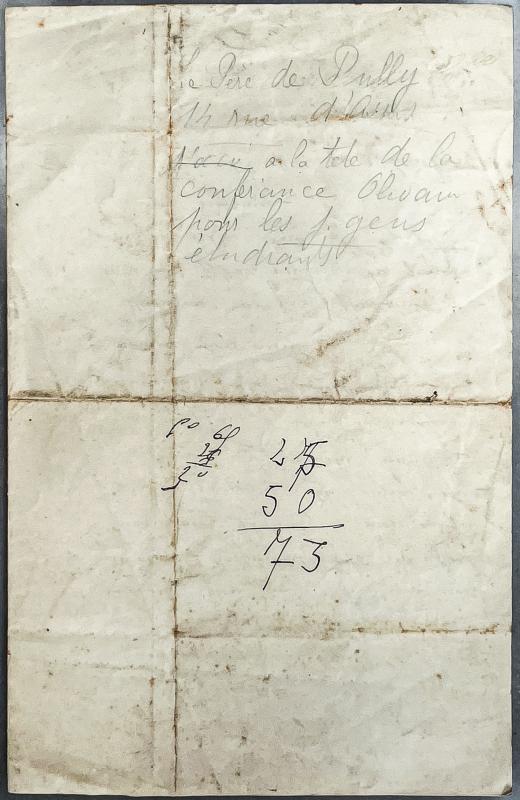 Le Père de Pully
14 rue d'Assas
a la tete de la
conferance Olivain
pour les j. gens
étudiants
50
73